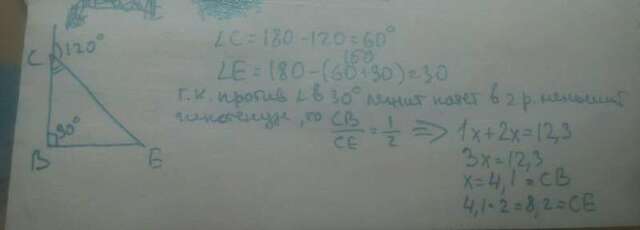 C 120°
90°
B E
∠C = 180 - 120 = 60°
∠E = 180 - (60 + 90) = 30
150
т.к. против ∠ в 30° лежит катет в 2 р. меньший
гипотенузы, то CB/CE = 1/2 => 1x + 2x = 12,3
3x = 12,3
x = 4,1 = CB
4,1 · 2 = 8,2 = CE